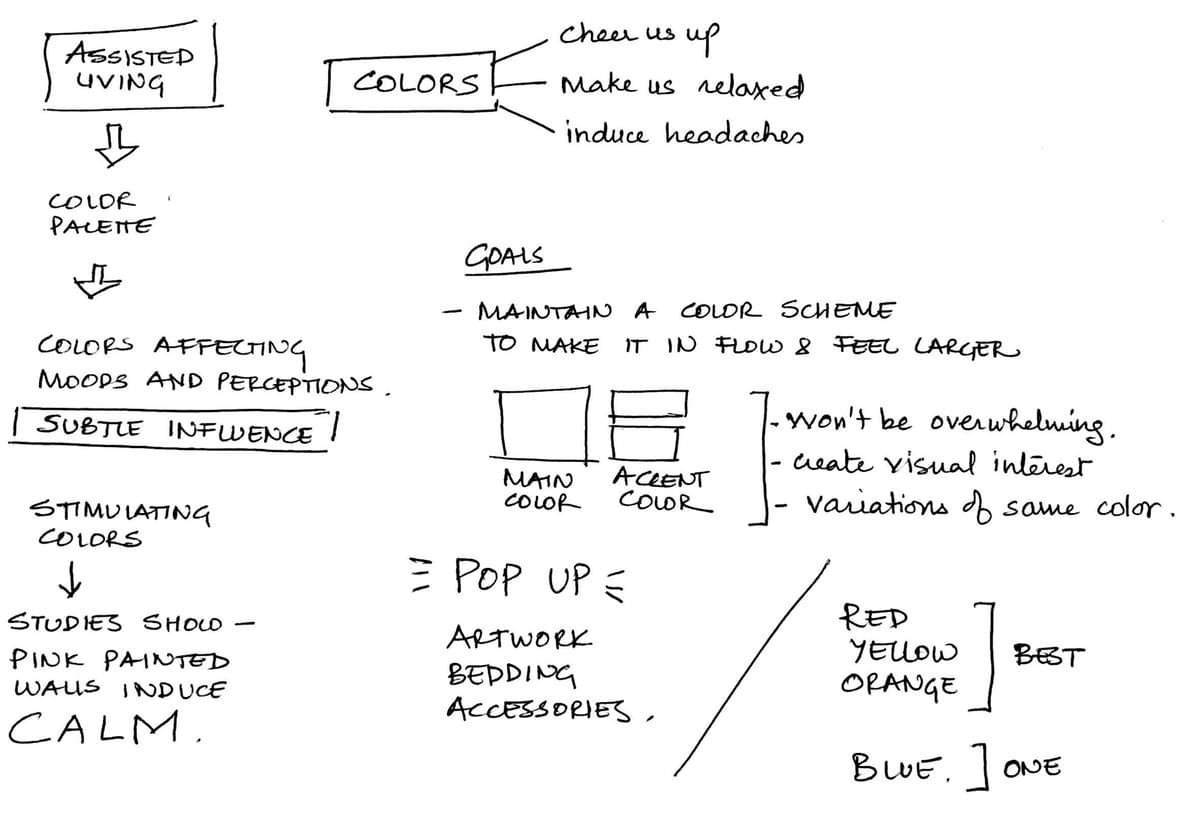 ASSISTED
LIVING
COLORS
Cheer us up
Make us relaxed
induce headaches
COLOR
PALETTE
COLORS AFFECTING
MOODS AND PERCEPTIONS.
SUBTLE INFLUENCE
STIMULATING
COLORS
STUDIES SHOW -
PINK PAINTED
WALLS INDUCE
CALM.
GOALS
- MAINTAIN A COLOR SCHEME
TO MAKE IT IN FLOW & FEEL LARGER
MAIN
COLOR
ACCENT
COLOR
- won't be overwhelming.
- create visual interest
- variations of same color.
POP UP
ARTWORK
BEDDING
ACCESSORIES.
RED
YELLOW
ORANGE
BEST
BLUE.
ONE